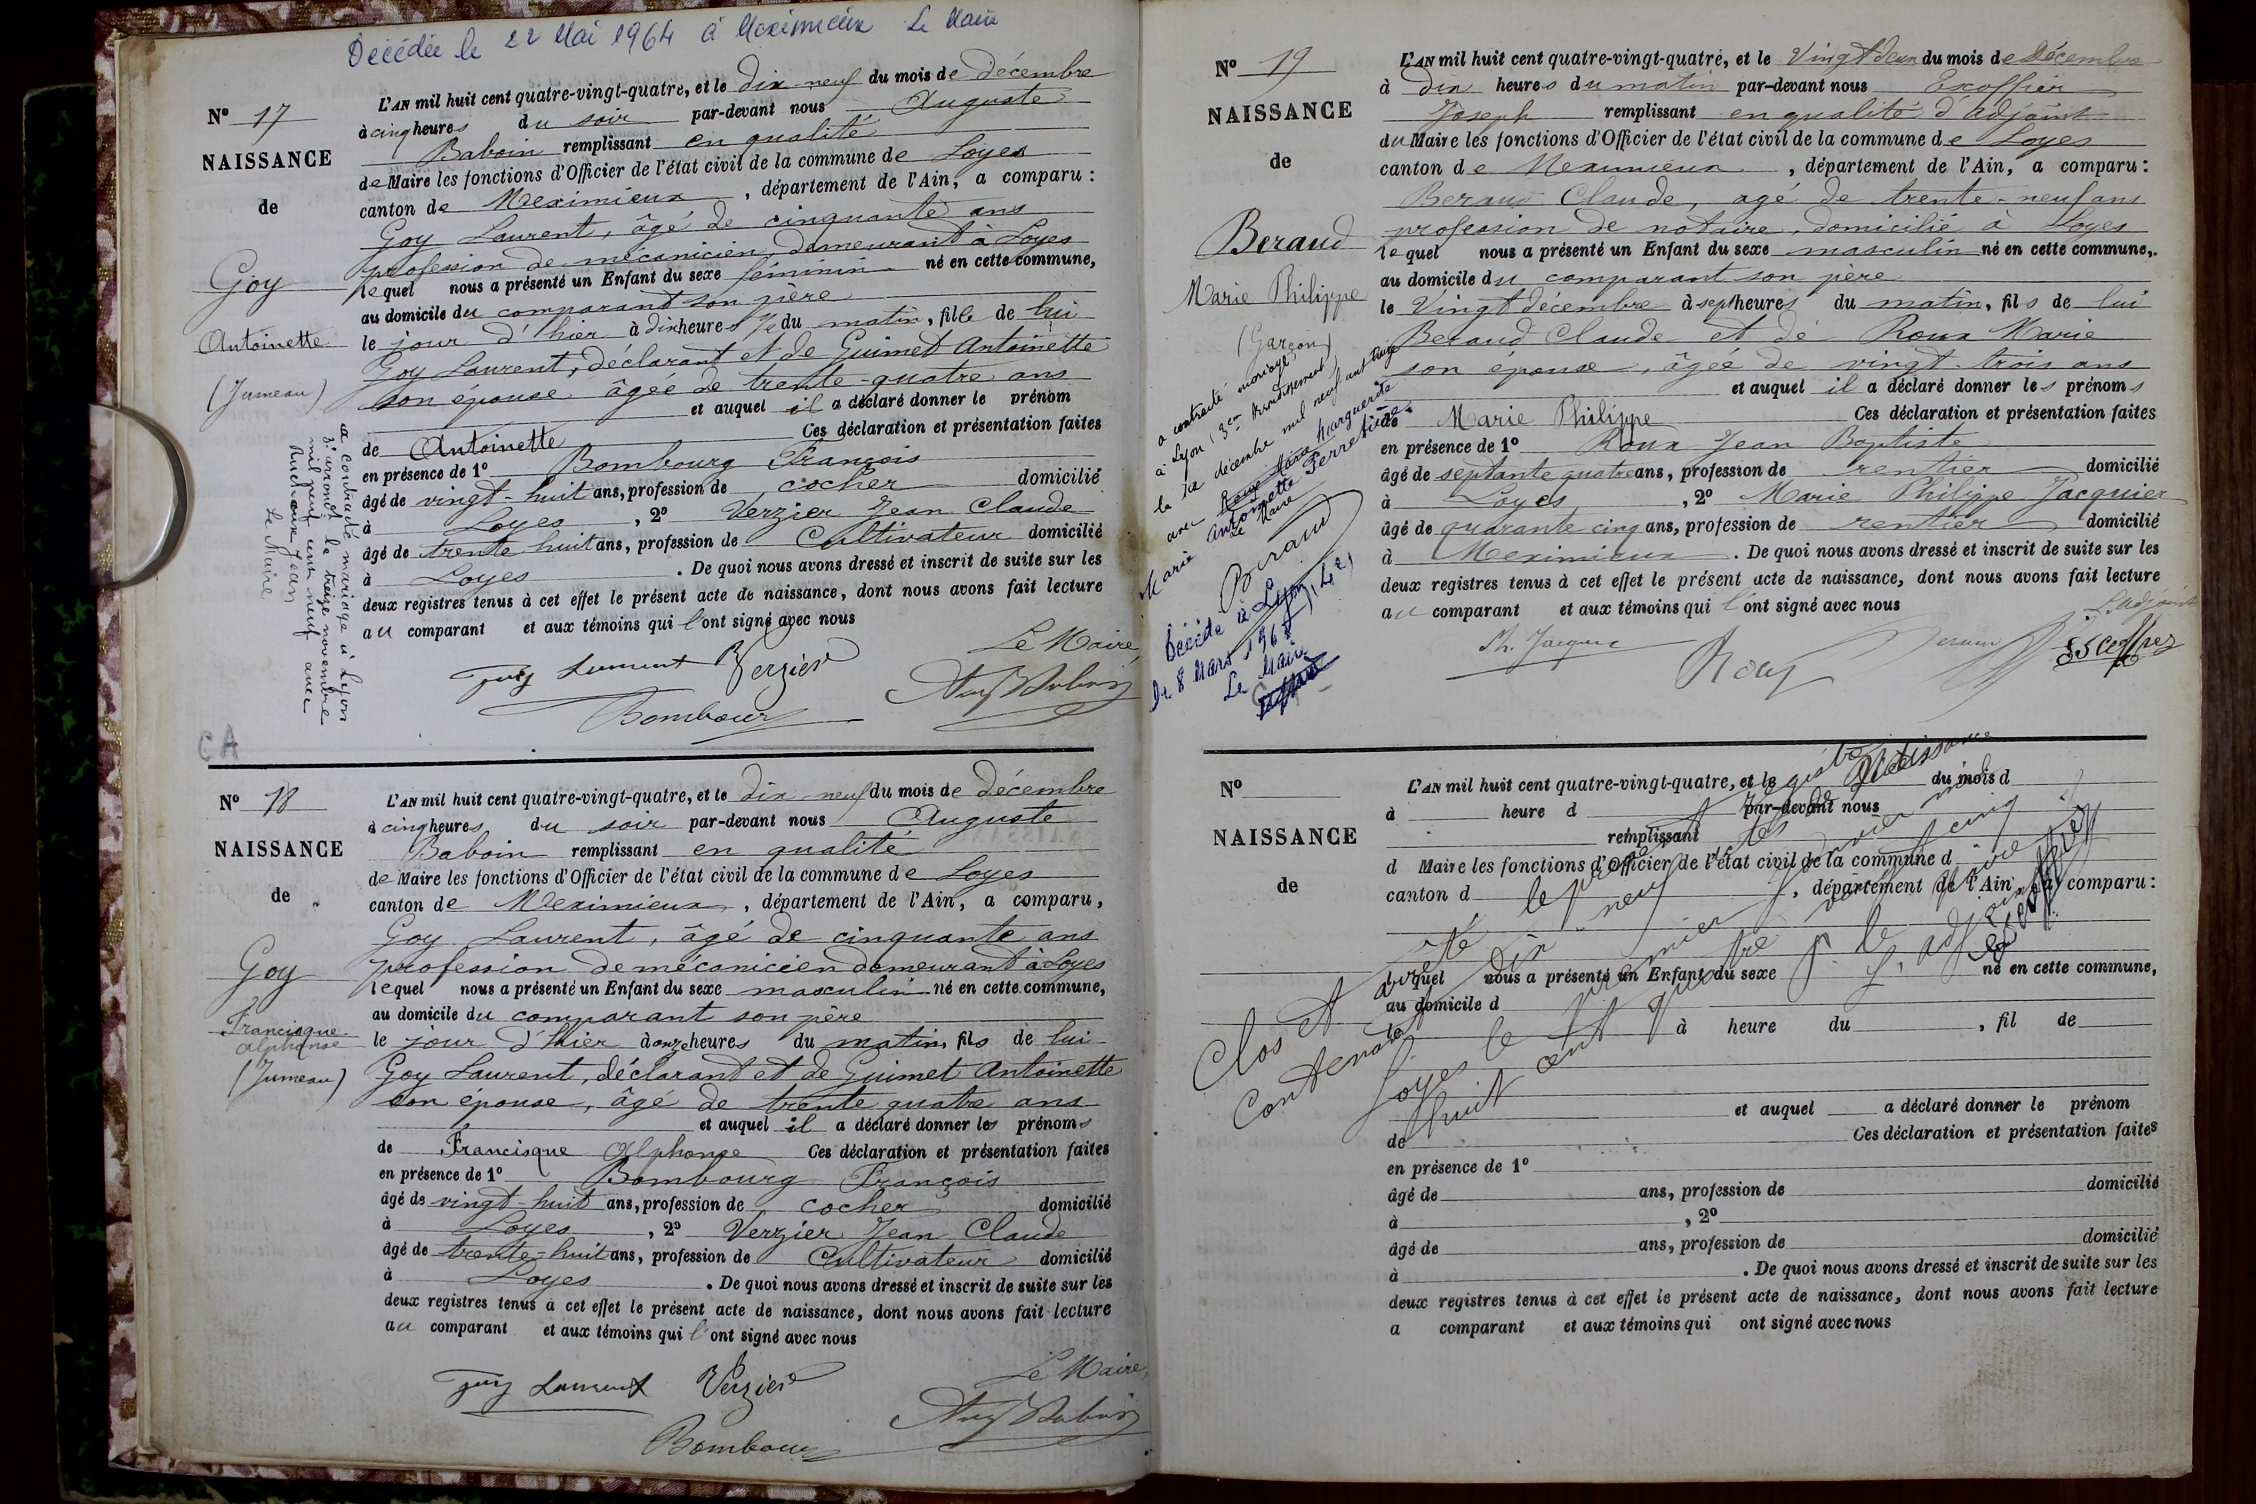 Décédée le 22 Mai 1964 à Meximieux Le Maire
N° 17
NAISSANCE
de
Goy
Antoinette
(Jumeau)
a contracté mariage à Lyon
3e arrondt le treize novembre
mil neuf cent neuf avec
Jean
Le Maire
L'AN mil huit cent quatre-vingt-quatre, et le dix-neuf du mois de décembre
à cinq heures du soir par-devant nous Auguste
Baboin remplissant en qualité
de Maire les fonctions d'Officier de l'état civil de la commune de Loyes
canton de Meximieux, département de l'Ain, a comparu :
Goy Laurent, âgé de cinquante ans
profession de mécanicien demeurant à Loyes
lequel nous a présenté un Enfant du sexe féminin né en cette commune,
au domicile du comparant son père
le jour d'hier à dix heures ½ du matin, fille de lui
Goy Laurent, déclarant et de Guimet Antoinette
son épouse âgée de trente-quatre ans
et auquel il a déclaré donner le prénom
de Antoinette Ces déclaration et présentation faites
en présence de 1° Bombourg François
âgé de vingt-huit ans, profession de cocher domicilié
à Loyes, 2° Verzier Jean Claude
âgé de trente huit ans, profession de Cultivateur domicilié
à Loyes. De quoi nous avons dressé et inscrit de suite sur les
deux registres tenus à cet effet le présent acte de naissance, dont nous avons fait lecture
au comparant et aux témoins qui l'ont signé avec nous
Goy Laurent Verzier Le Maire,
Bombourg Aug Baboin
CA
N° 18
NAISSANCE
de
Goy
Francisque
Alphonse
(Jumeau)
L'AN mil huit cent quatre-vingt-quatre, et le dix-neuf du mois de décembre
à cinq heures du soir par-devant nous Auguste
Baboin remplissant en qualité
de Maire les fonctions d'Officier de l'état civil de la commune de Loyes
canton de Meximieux, département de l'Ain, a comparu,
Goy Laurent, âgé de cinquante ans
profession de mécanicien demeurant à Loyes
lequel nous a présenté un Enfant du sexe masculin né en cette commune,
au domicile du comparant son père
le jour d'hier à onze heures du matin, fils de lui
Goy Laurent, déclarant et de Guimet Antoinette
son épouse, âgé de trente quatre ans
et auquel il a déclaré donner les prénoms
de Francisque Alphonse Ces déclaration et présentation faites
en présence de 1° Bombourg François
âgé de vingt-huit ans, profession de cocher domicilié
à Loyes, 2° Verzier Jean Claude
âgé de trente-huit ans, profession de Cultivateur domicilié
à Loyes. De quoi nous avons dressé et inscrit de suite sur les
deux registres tenus à cet effet le présent acte de naissance, dont nous avons fait lecture
au comparant et aux témoins qui l'ont signé avec nous
Goy Laurent Verzier Le Maire,
Bombourg Aug Baboin
N° 19
NAISSANCE
de
Beraud
Marie Philippe
(Garçon)
a contracté mariage
à Lyon (3em Arrondissement)
le décembre mil neuf cent
avec Marguerite
Marie Antoinette
Le Maire
Beraud
Décédé à Lyon
le 8 Mars 1968
Le Maire
L'AN mil huit cent quatre-vingt-quatre, et le Vingt deux du mois de Décembre
à dix heures du matin par-devant nous Excoffier
Joseph remplissant en qualité d'adjoint
du Maire les fonctions d'Officier de l'état civil de la commune de Loyes
canton de Meximieux, département de l'Ain, a comparu :
Beraud Claude, agé de trente-neuf ans
profession de notaire, domicilié à Loyes
lequel nous a présenté un Enfant du sexe masculin né en cette commune,
au domicile du comparant son père
le Vingt décembre à sept heures du matin, fils de lui
Beraud Claude et de Roux Marie
son épouse, âgée de vingt-trois ans
et auquel il a déclaré donner les prénoms
de Marie Philippe Ces déclaration et présentation faites
en présence de 1° Roux Jean Baptiste
âgé de septante quatre ans, profession de rentier domicilié
à Loyes, 2° Marie Philippe Jacquier
âgé de quarante cinq ans, profession de rentier domicilié
à Meximieux. De quoi nous avons dressé et inscrit de suite sur les
deux registres tenus à cet effet le présent acte de naissance, dont nous avons fait lecture
au comparant et aux témoins qui l'ont signé avec nous
L'adjoint
Ph. Jacquier Roux Beraud Excoffier
N°
NAISSANCE
de
L'AN mil huit cent quatre-vingt-quatre, et le du mois d
à heure d par-devant nous
remplissant
d Maire les fonctions d'Officier de l'état civil de la commune d
canton d , département de l'Ain, a comparu :
lequel nous a présenté un Enfant du sexe né en cette commune,
au domicile d
le à heure du , fil de
et auquel a déclaré donner le prénom
de Ces déclaration et présentation faites
en présence de 1°
âgé de ans, profession de domicilié
à , 2°
âgé de ans, profession de domicilié
à . De quoi nous avons dressé et inscrit de suite sur les
deux registres tenus à cet effet le présent acte de naissance, dont nous avons fait lecture
a comparant et aux témoins qui ont signé avec nous
Clos et arrêté le présent registre
Contenant dix-neuf actes de Naissance
Loyes le premier janvier mil
huit cent quatre vingt cinq
p. le Maire
l'adjoint
Excoffier